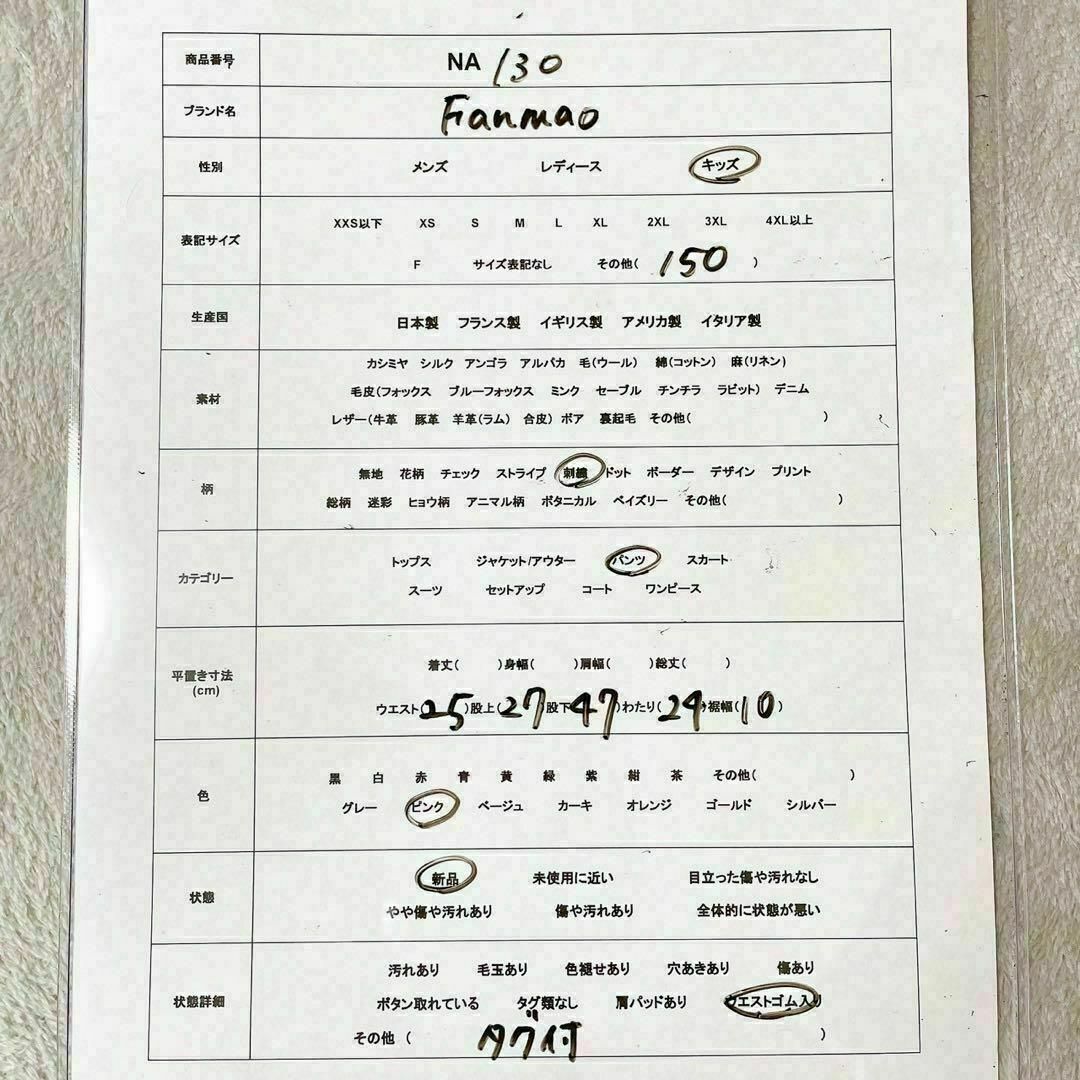 商品番号 NA 130
ブランド名 Fanmao
性別 メンズ レディース キッズ
表記サイズ
XXS以下 XS S M L XL 2XL 3XL 4XL以上
F サイズ表記なし その他( 150 )
生産国 日本製 フランス製 イギリス製 アメリカ製 イタリア製
素材
カシミヤ シルク アンゴラ アルパカ 毛(ウール) 綿(コットン) 麻(リネン)
毛皮(フォックス ブルーフォックス ミンク セーブル チンチラ ラビット) デニム
レザー(牛革 豚革 羊革(ラム) 合皮) ボア 裏起毛 その他( )
柄
無地 花柄 チェック ストライプ 刺繍 ドット ボーダー デザイン プリント
総柄 迷彩 ヒョウ柄 アニマル柄 ボタニカル ペイズリー その他( )
カテゴリー
トップス ジャケット/アウター パンツ スカート
スーツ セットアップ コート ワンピース
平置き寸法
(cm)
着丈( )身幅( )肩幅( )総丈( )
ウエスト( 25 )股上( 27 )股下( 47 )わたり( 24 )裾幅( 10 )
色
黒 白 赤 青 黄 緑 紫 紺 茶 その他( )
グレー ピンク ベージュ カーキ オレンジ ゴールド シルバー
状態
新品 未使用に近い 目立った傷や汚れなし
やや傷や汚れあり 傷や汚れあり 全体的に状態が悪い
状態詳細
汚れあり 毛玉あり 色褪せあり 穴あきあり 傷あり
ボタン取れている タグ類なし 肩パッドあり ウエストゴム入り
その他 ( タグ付 )